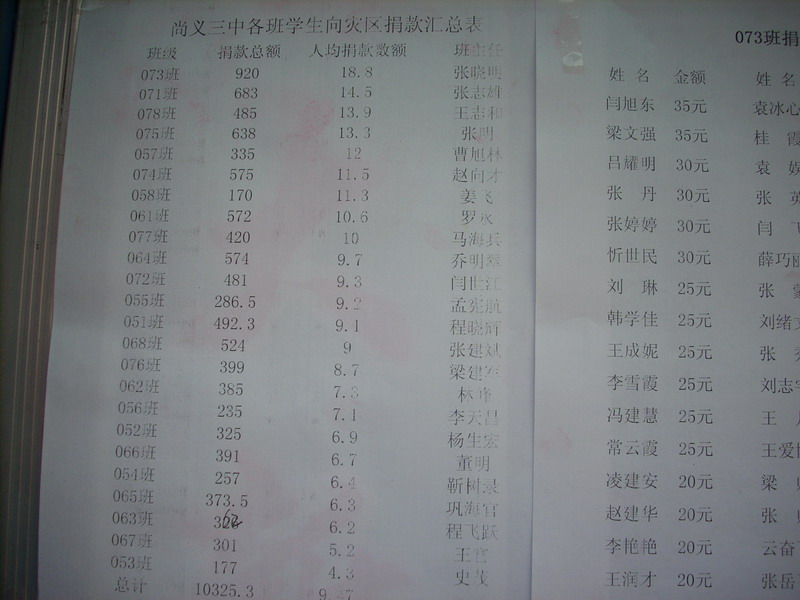 尚义三中各班学生向灾区捐款汇总表
班级 捐款总额 人均捐款数额 班主任
073班 920 18.8 张晓明
071班 683 14.5 张志雄
078班 485 13.9 王志和
075班 638 13.3 张明
057班 335 12 曹旭林
074班 575 11.5 赵向才
058班 170 11.3 姜飞
061班 572 10.6 罗永
077班 420 10 马海兵
064班 574 9.7 乔明翠
072班 481 9.3 闫世江
055班 286.5 9.2 孟宪航
051班 492.3 9.1 程晓辉
068班 524 9 张建斌
076班 399 8.7 梁建军
062班 385 7.3 林峰
056班 235 7.1 李天昌
052班 325 6.9 杨生宏
066班 391 6.7 董明
054班 257 6.4 靳树录
065班 373.5 6.3 巩海官
063班 6.2 程飞跃
067班 301 5.2 王官
053班 177 4.3 史茂
总计 10325.3
073班捐
姓名 金额 姓名
闫旭东 35元 袁冰心
梁文强 35元 桂霞
吕耀明 30元 袁娱
张丹 30元 张英
张婷婷 30元 闫飞
忻世民 30元 薛巧丽
刘琳 25元 张
韩学佳 25元 刘绪文
王成妮 25元 张
李雪霞 25元 刘志宇
冯建慧 25元 王
常云霞 25元 王爱
凌建安 20元 梁
赵建华 20元 张
李艳艳 20元 云奋
王润才 20元 张岳